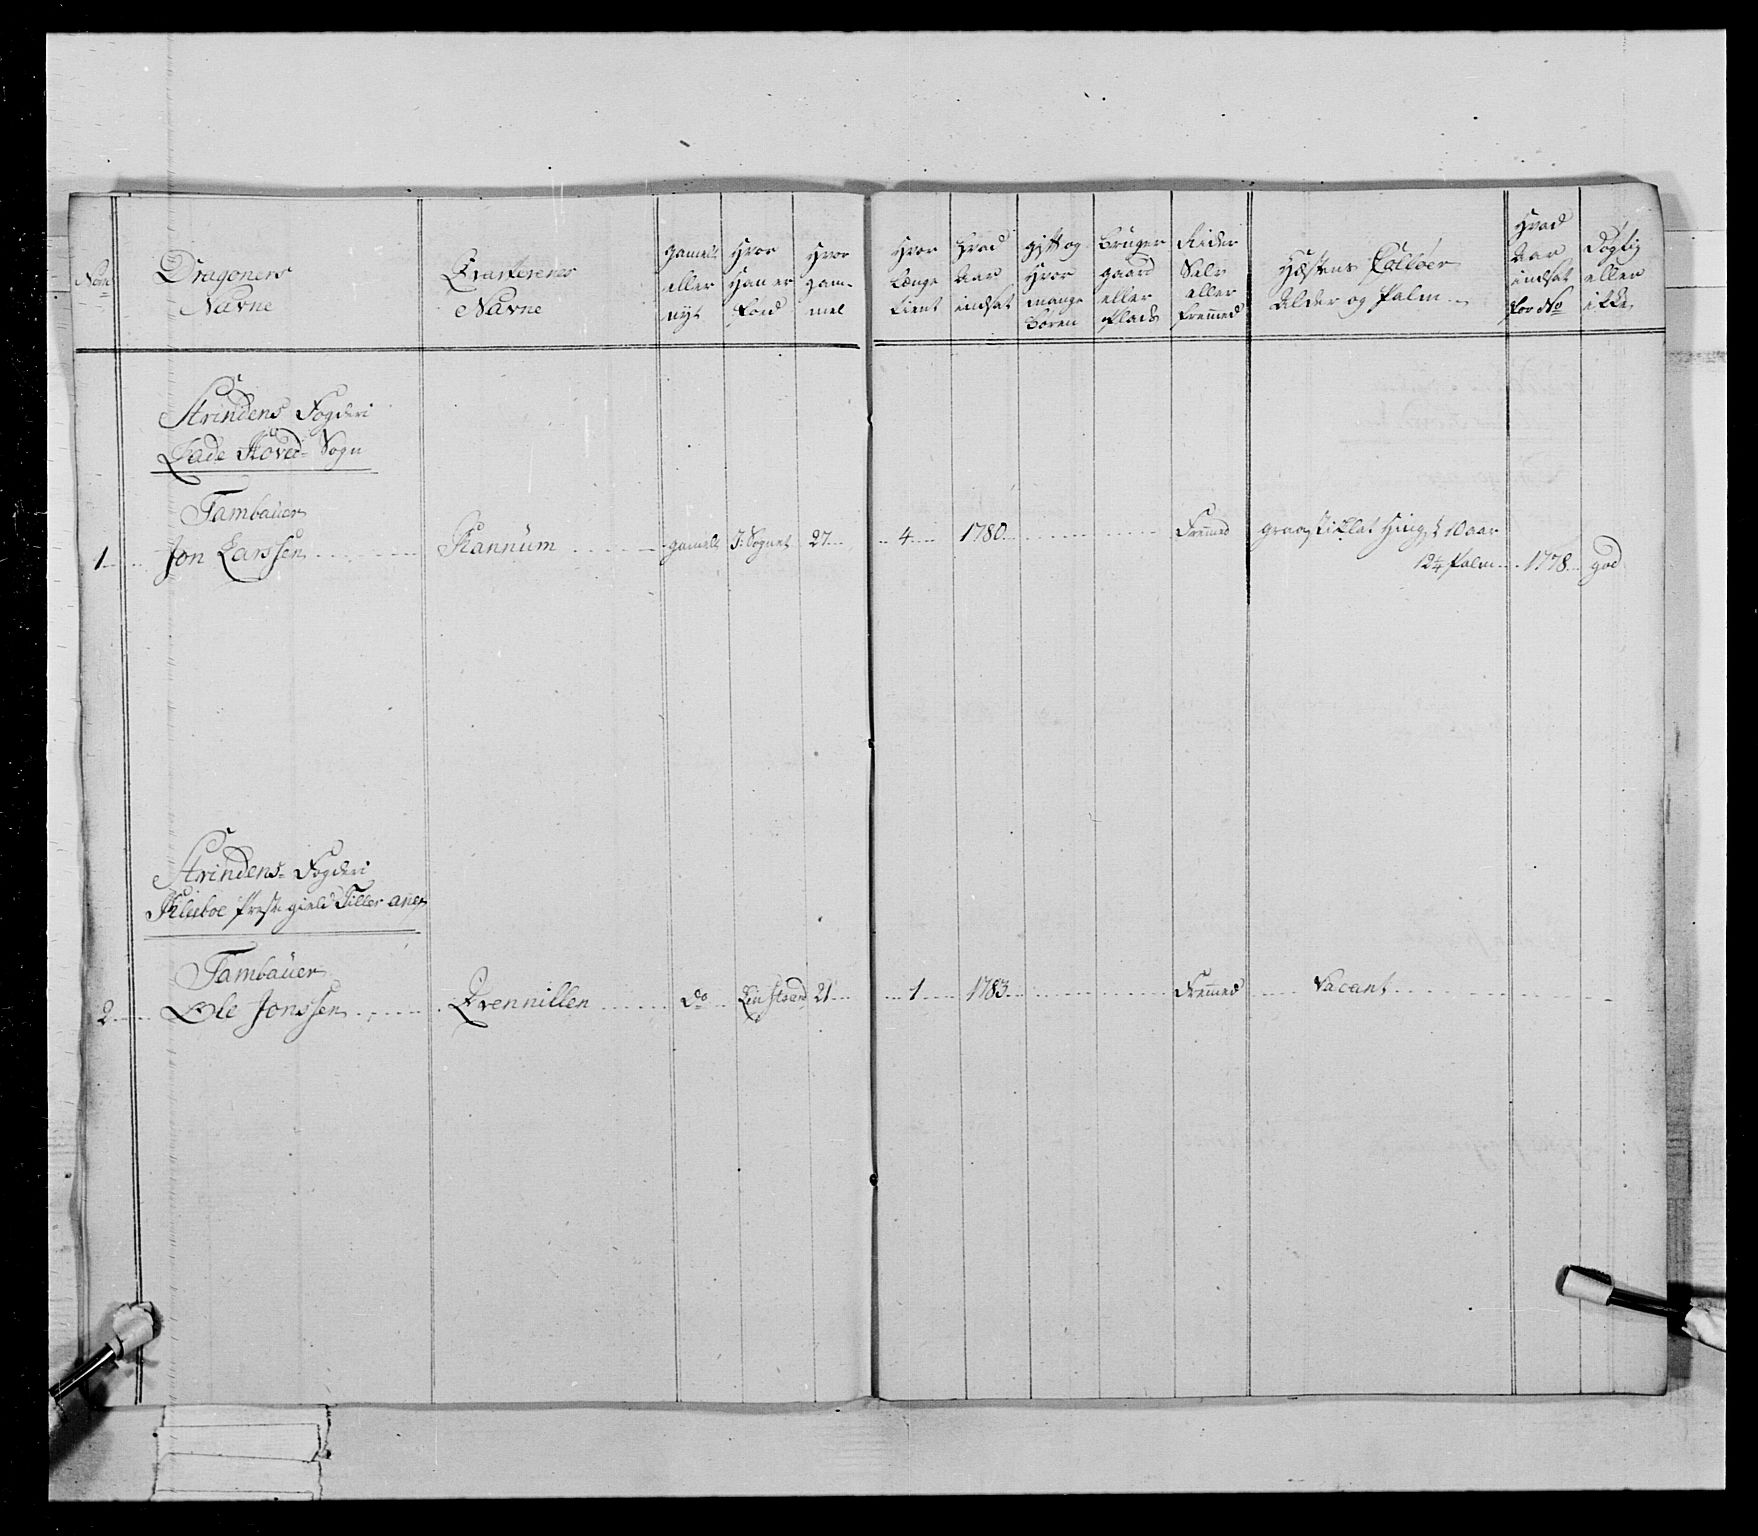 Nom
Dragoners
Navne
Qvarterenes
Navne
gamell
eller
nye
Hvor
Han er
Föed
Hvor
gam-
mel
Hvor
Længe
tient
Hvad
Aar
indsat
gift og
Hvor
mange
Børen
Bruger
gaard
eller
Plads
Rider
Selv
eller
fremmed
Hæstens Collöer
Alder og Palm
Hvad
Aar
indsat
for No
Dygtig
eller
ikke
Strindens Fogderi
Lade Hoved Sogn
Tambauer
1 Jon Larssen Rannum gamell J Sognet 27 4 1780 Fremmed graaskiklet Hingst 10 aar
12¼ Palm 1778 god
Strindens Fogderi
Klæboe Præste gield Tiller anex
Tambauer
2 Ole Jonssen Qvennillen do Leinstrand 21 1 1783 Fremmed Vacant